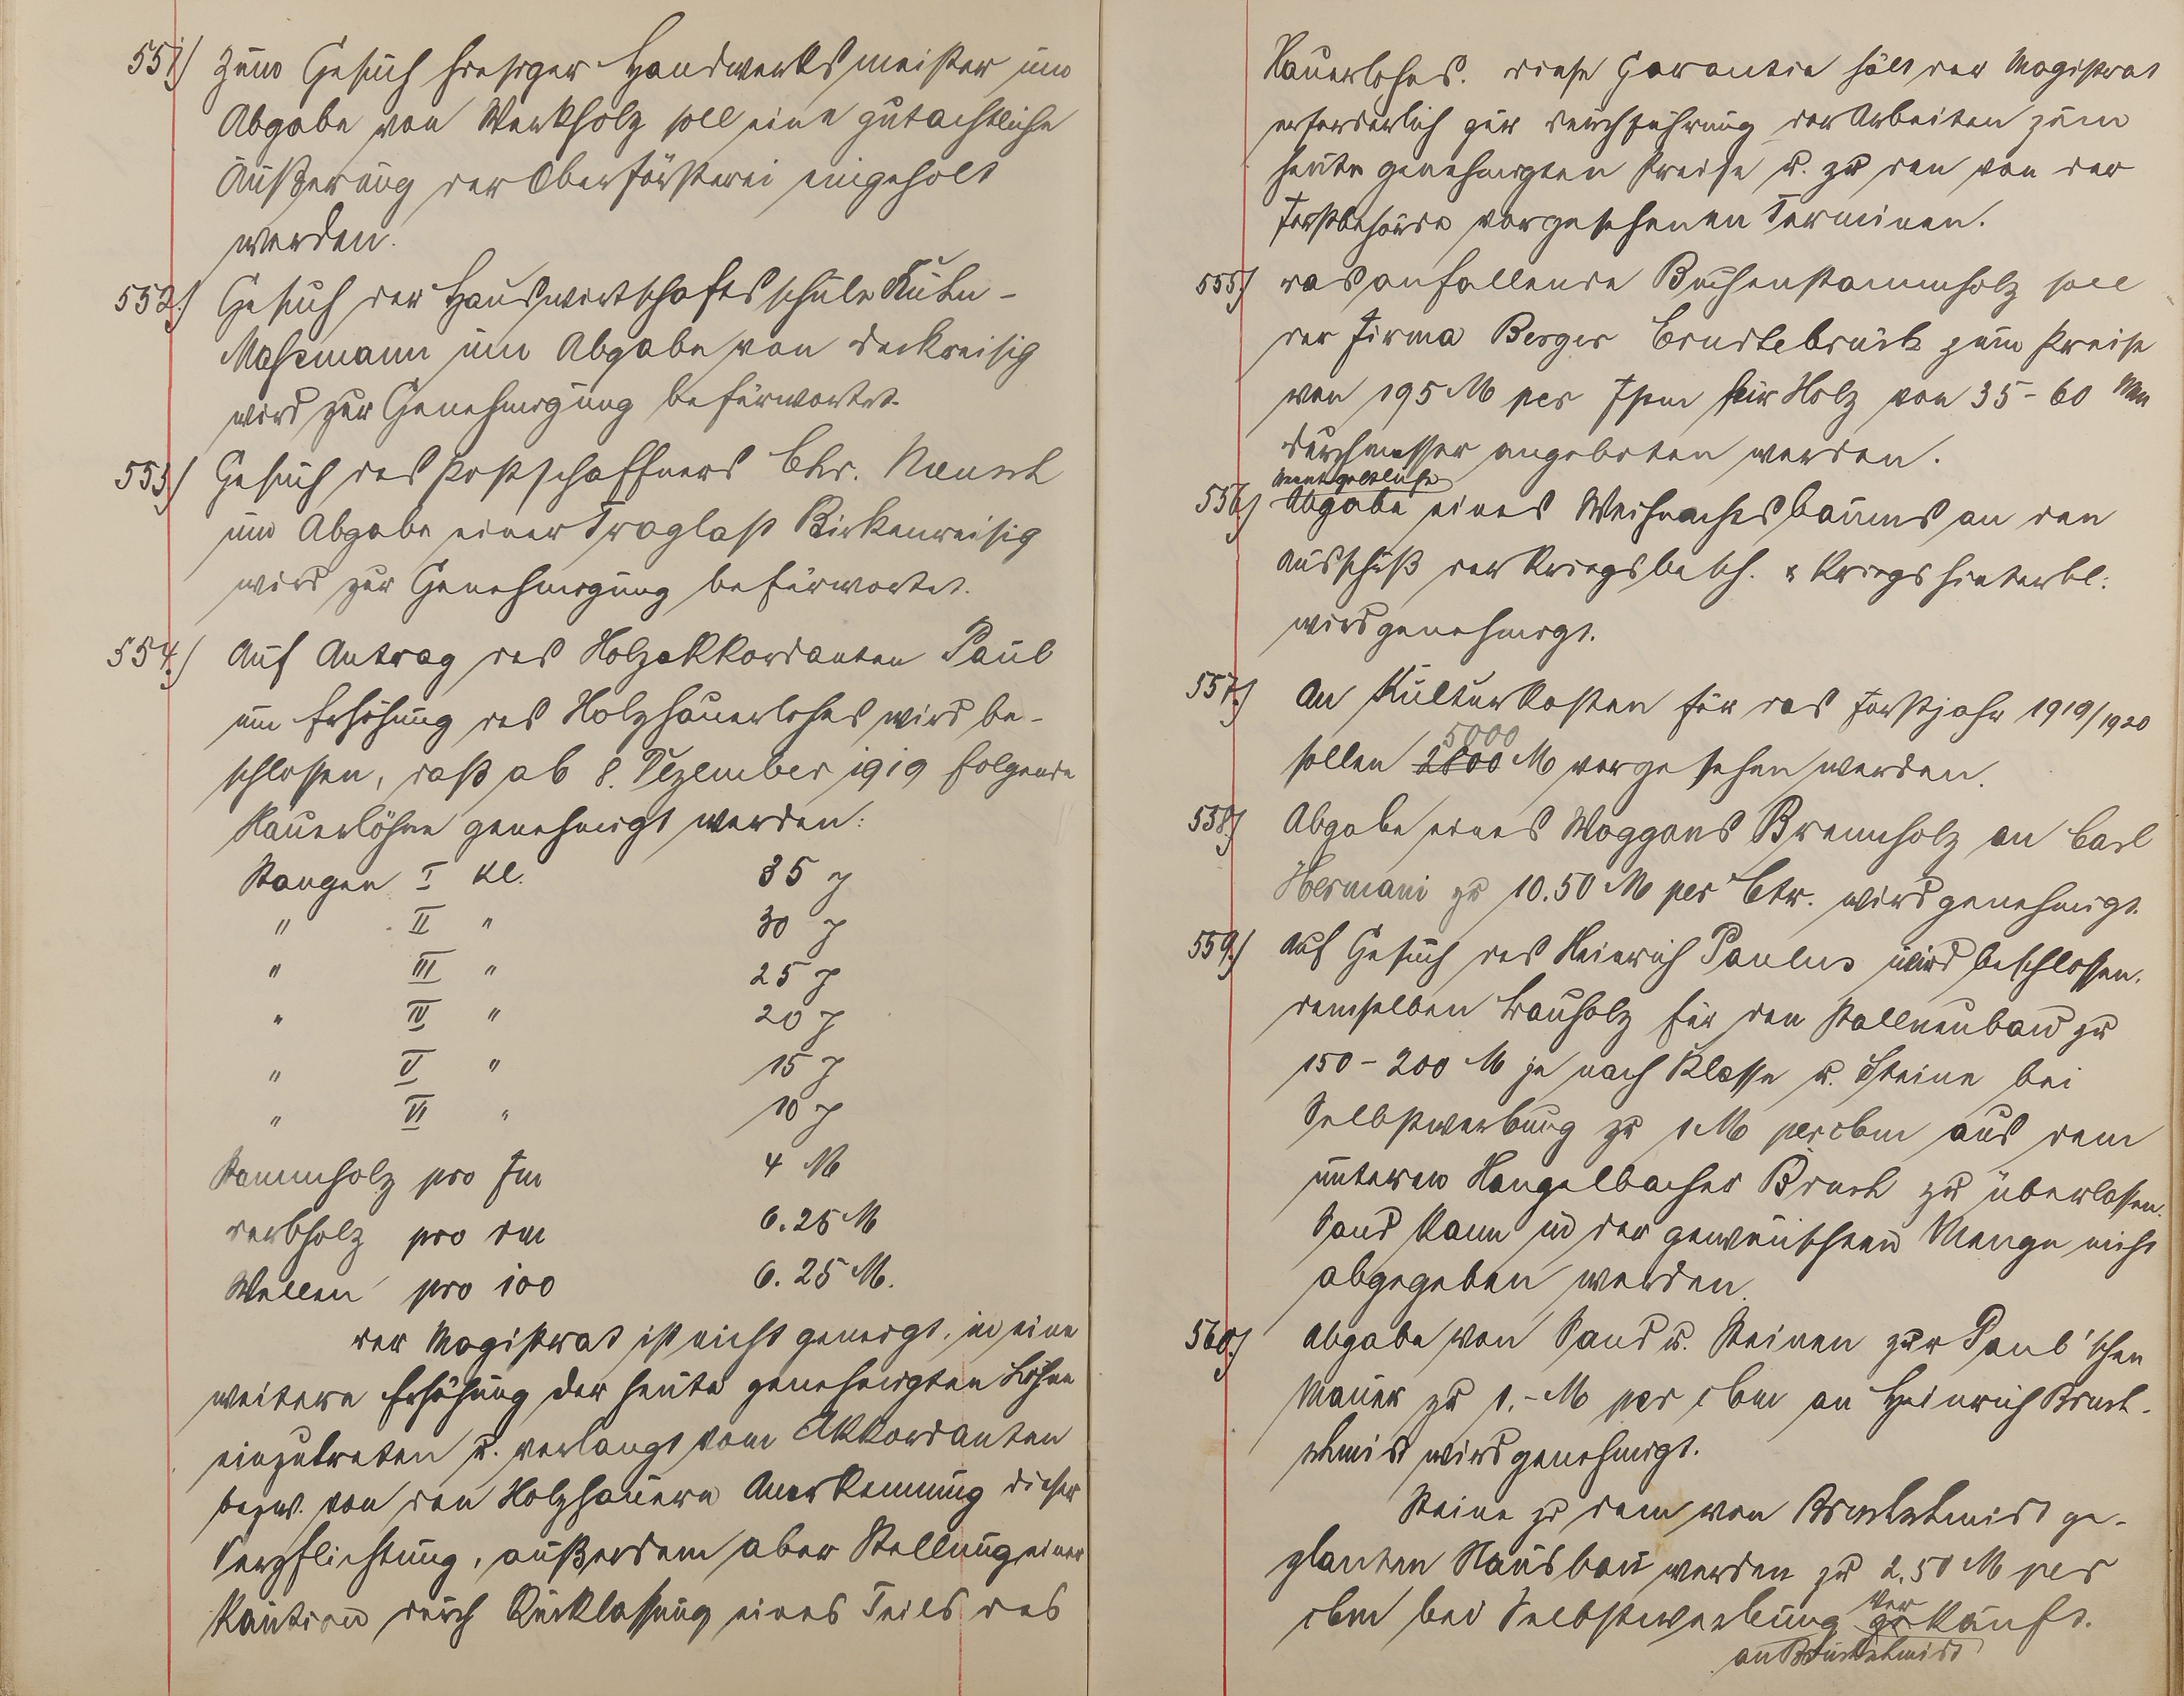 551) Zum Gesuch hiesiger Handwerksmeister um
Abgabe von Werkholz soll eine gutachtliche
Äußerung der Oberförsterei eingeholt
werden.
552) Gesuch der Hauswirtschaftsschule Kuhn-
Massmann um Abgabe von Deckreisig
wird zur Genehmigung befürwortet.
553) Gesuch des Postschaffners Chr. Bausch
um Abgabe einer Traglast Birkenreisig
wird zur Genehmigung befürwortet.
554.) Auf Antrag des Holzakkordanten Paul
um Erhöhung des Holzhauerlohes wird be-
schlossen, daß ab 8. Dezember 1919 folgende
Hauerlöhne genehmigt werden:
Stangen I Kl. 35 ₰
" II " 30 ₰
" III " 25 ₰
" IV " 20 ₰
" V " 15 ₰
" VI " 10 ₰
Stammholz pro Fm 4 M
Derbholz pro rm 6.25 M
Wellen pro 100 6.25 M.
Der Magistrat ist nicht geneigt, in eine
weitere Erhöhung der heute genehmigten Löhne
einzutreten u. verlangt vom Akkordanten
bezw. von den Holzhauern Anerkennung dieser
Verpflichtung, außerdem aber Stellung einer
Kaution durch Rücklassung eines Teils des
Hauerlohes. Diese Garantie hält der Magistrat
erforderlich zur Durchführung der Arbeiten zum
heute genehmigten Preise u. zu den von der
Forstbehörde vorgesehenen Terminen.
555) Das anfallende Buchenstammholz soll
der Firma Berger Erndtebrück zum Preise
von 195 M per Fstm für Holz von 35-60
Durchmesser angeboten werden.
unentgeltliche
556) Abgabe eines Weihnachtsbaums an den
Ausschuß der Kriegsbesch. & Kriegshinterbl.
wird genehmigt.
557.) An Kulturkosten für das Forstjahr 1919/1920
5000
sollen 2800 M vorgesehen werden.
558) Abgabe eines Waggons Brennholz an Carl
Hermani zu 10.50 M per Ctr. wird genehmigt.
559.) Auf Gesuch des Heinrich Paulus wird beschlossen,
demselben Bauholz für den Stallneubau zu
150-200 M je nach Klasse u. Steine bei
Selbstwerbung zu 1 M per cbm aus dem
unteren Hangelbacher Bruch zu überlassen.
Sand kann in der gewünschten Menge nicht
abgegeben werden.
560.) Abgabe von Sand u. Steinen zur Paul'schen
Mauer zu 1.- M per cbm an Heinrich Bruch-
schmidt wird genehmigt.
Steine zu dem von Bruchschmidt ge-
planten Hausbau werden zu 2.50 M per
ver
cbm bei Selbstwerbung gekauft.
an Bruchschmidt